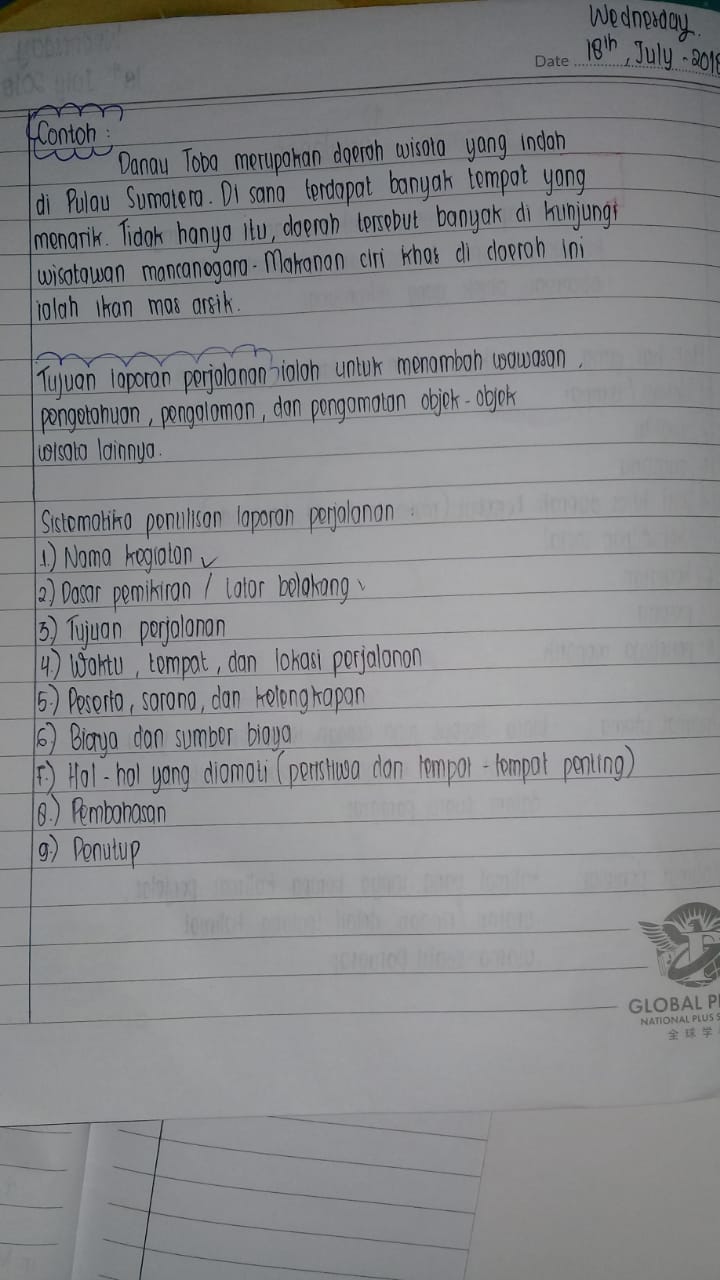 Wednesday.
Date 18th, July - 2018
Contoh :
Danau Toba merupakan daerah wisata yang indah
di Pulau Sumatera. Di sana terdapat banyak tempat yang
menarik. Tidak hanya itu, daerah tersebut banyak di kunjungi
wisatawan mancanegara. Makanan ciri khas di daerah ini
ialah ikan mas arsik.
Tujuan laporan perjalanan ialah untuk menambah wawasan,
pengetahuan, pengalaman, dan pengamatan objek - objek
wisata lainnya.
Sistematika penulisan laporan perjalanan :
1.) Nama kegiatan ✓
2.) Dasar pemikiran / latar belakang ✓
3.) Tujuan perjalanan
4.) Waktu, tempat, dan lokasi perjalanan
5.) Peserta, sarana, dan kelengkapan
6.) Biaya dan sumber biaya
7.) Hal - hal yang diamati (peristiwa dan tempat - tempat penting)
8.) Pembahasan
9.) Penutup
GLOBAL
NATIONAL PLUS
全球学